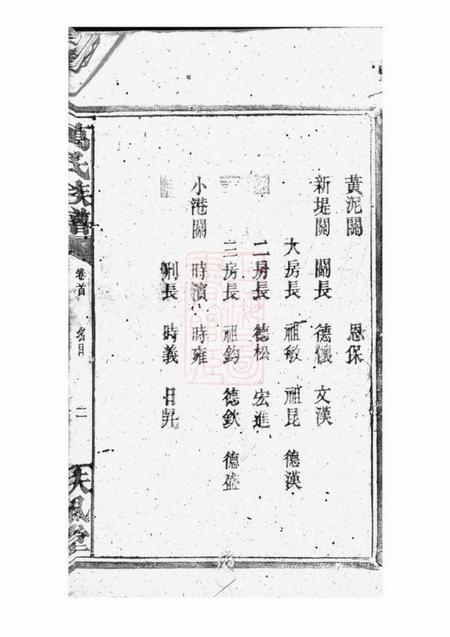 黃泥關　恩保
新堤關　關長　德懷　文漢
大房長　祖敏　祖昆　德漢
二房長　德松　宏進
三房長　祖鈞　德欽　德盛
小港關　時濱　時雍
時義　日昇
氏族譜
卷首　名目　二